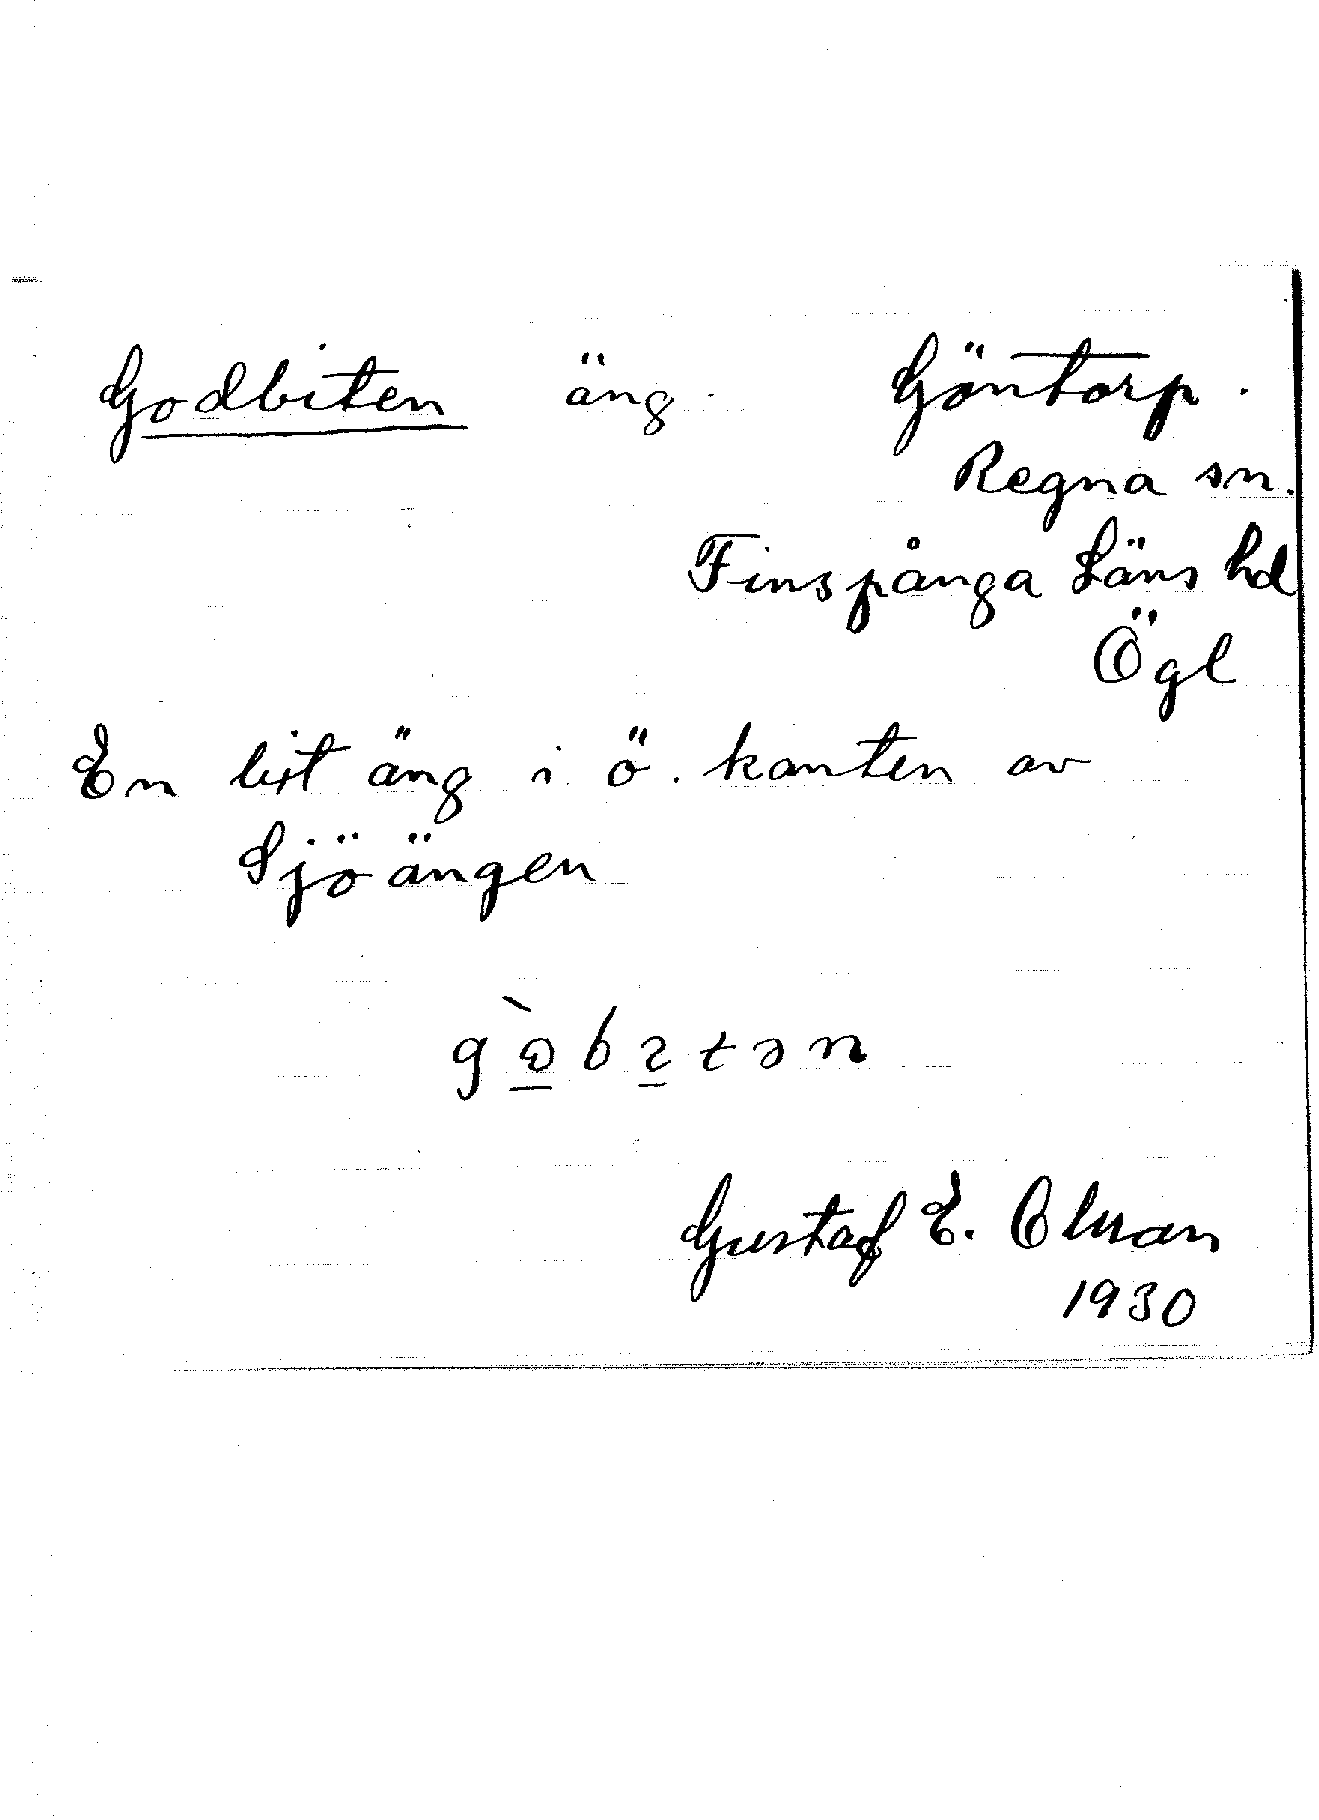 Godbiten äng. Göntorp.
Regna sn.
Finspånga Läns hd
Ögl
En bit äng i ö. kanten av
Sjöängen
Gustaf E. Olman
1930